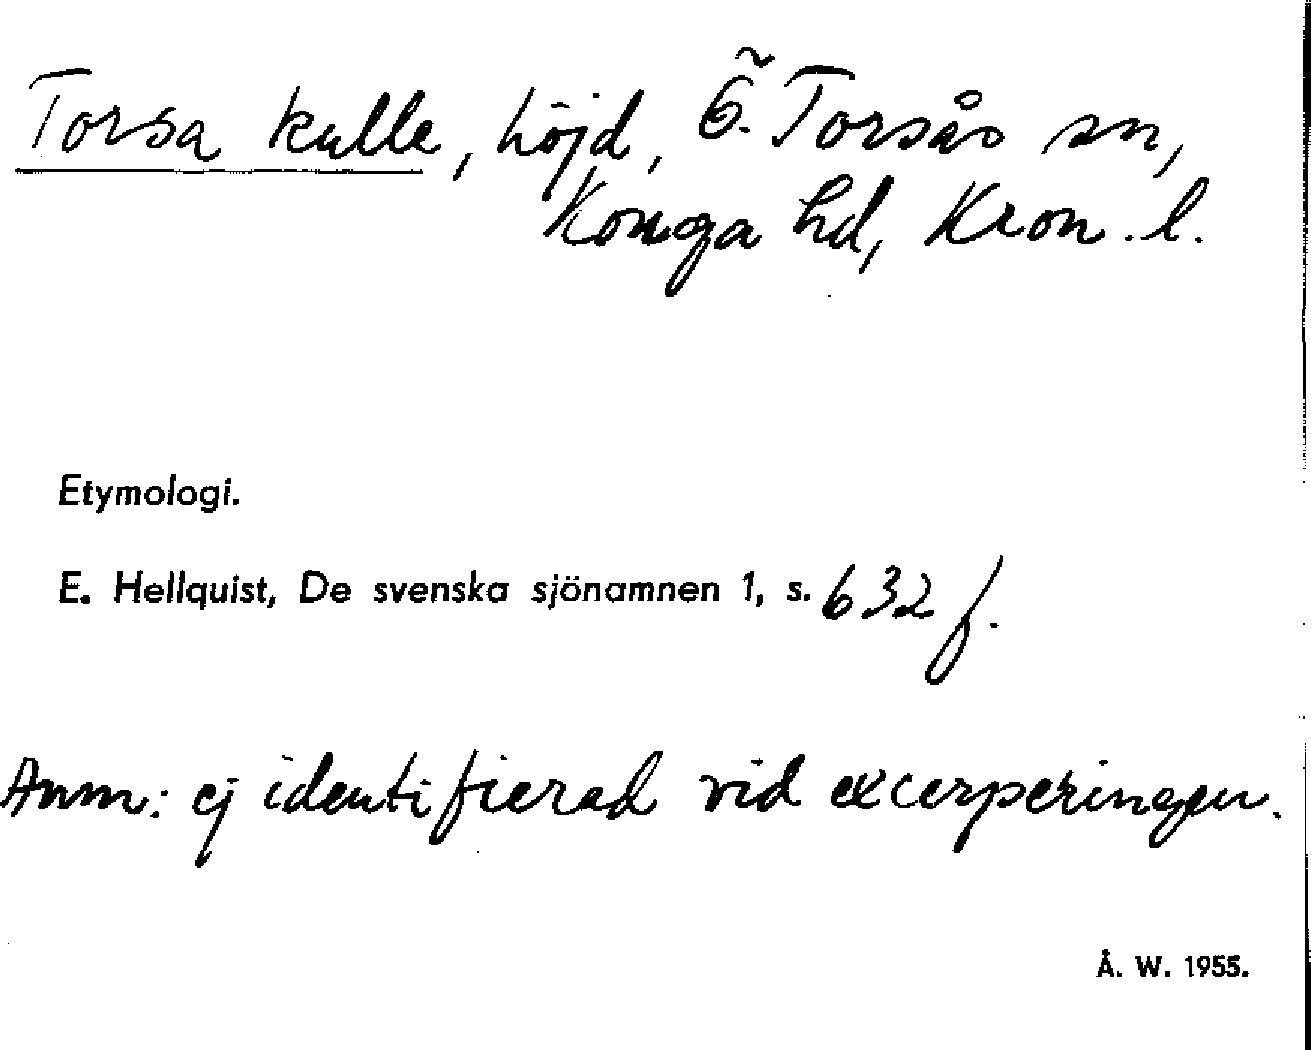 Torsa kulle, höjd, Ö. Torsås sn,
Konga hd, Kron. l.
Etymologi.
E. Hellquist, De svenska sjönamnen 1, s. 632 f.
Anm: ej identifierad vid excerperingen.
Å. W. 1955.